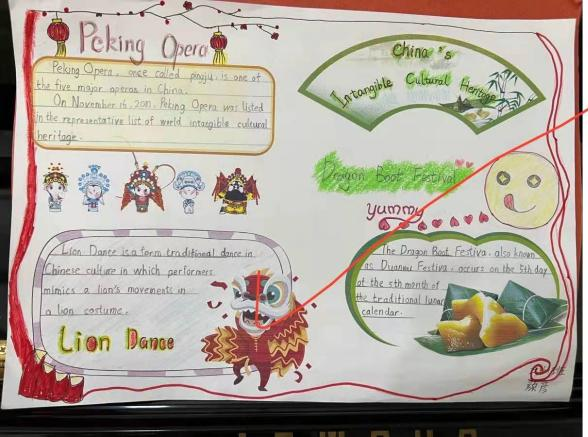 Peking Opera
Peking Opera, once called pingju, is one of
the five major operas in China.
On November 16, 2011, Peking Opera was listed
in the representative list of world intangible cultural
heritage.
China's
Intangible Cultural Heritage
Dragon Boat Festival
yummy
Lion Dance is a form traditional dance in
Chinese culture in which performers
mimics a lion's movements in
a lion costume.
Lion Dance
The Dragon Boat Festiva, also known
as Duanwu Festiva, occurs on the 5th day
of the 5th month of
the traditional lunar
calendar.